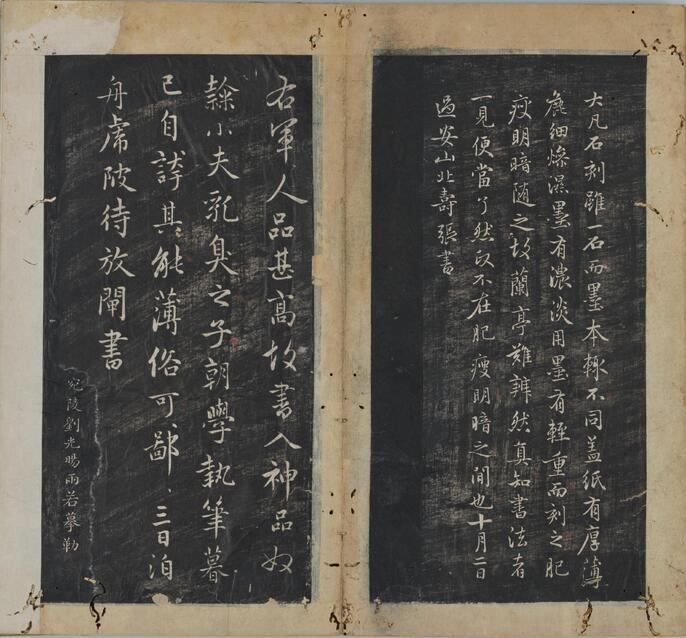 大凡石刻雖一石而墨本輒不同盖紙有厚薄
麁細燥濕墨有濃淡用墨有輕重而刻之肥
瘦明暗随之故蘭亭難辨然真知書法者
一見便當了然政不在肥瘦明暗之間也十月二日
過安山北壽張書
右軍人品甚高故書入神品奴
隸小夫乳臭之子朝學執筆暮
已自誇其能薄俗可鄙〻三日泊
舟虎陂待放閘書
宛陵劉光暘雨若摹勒